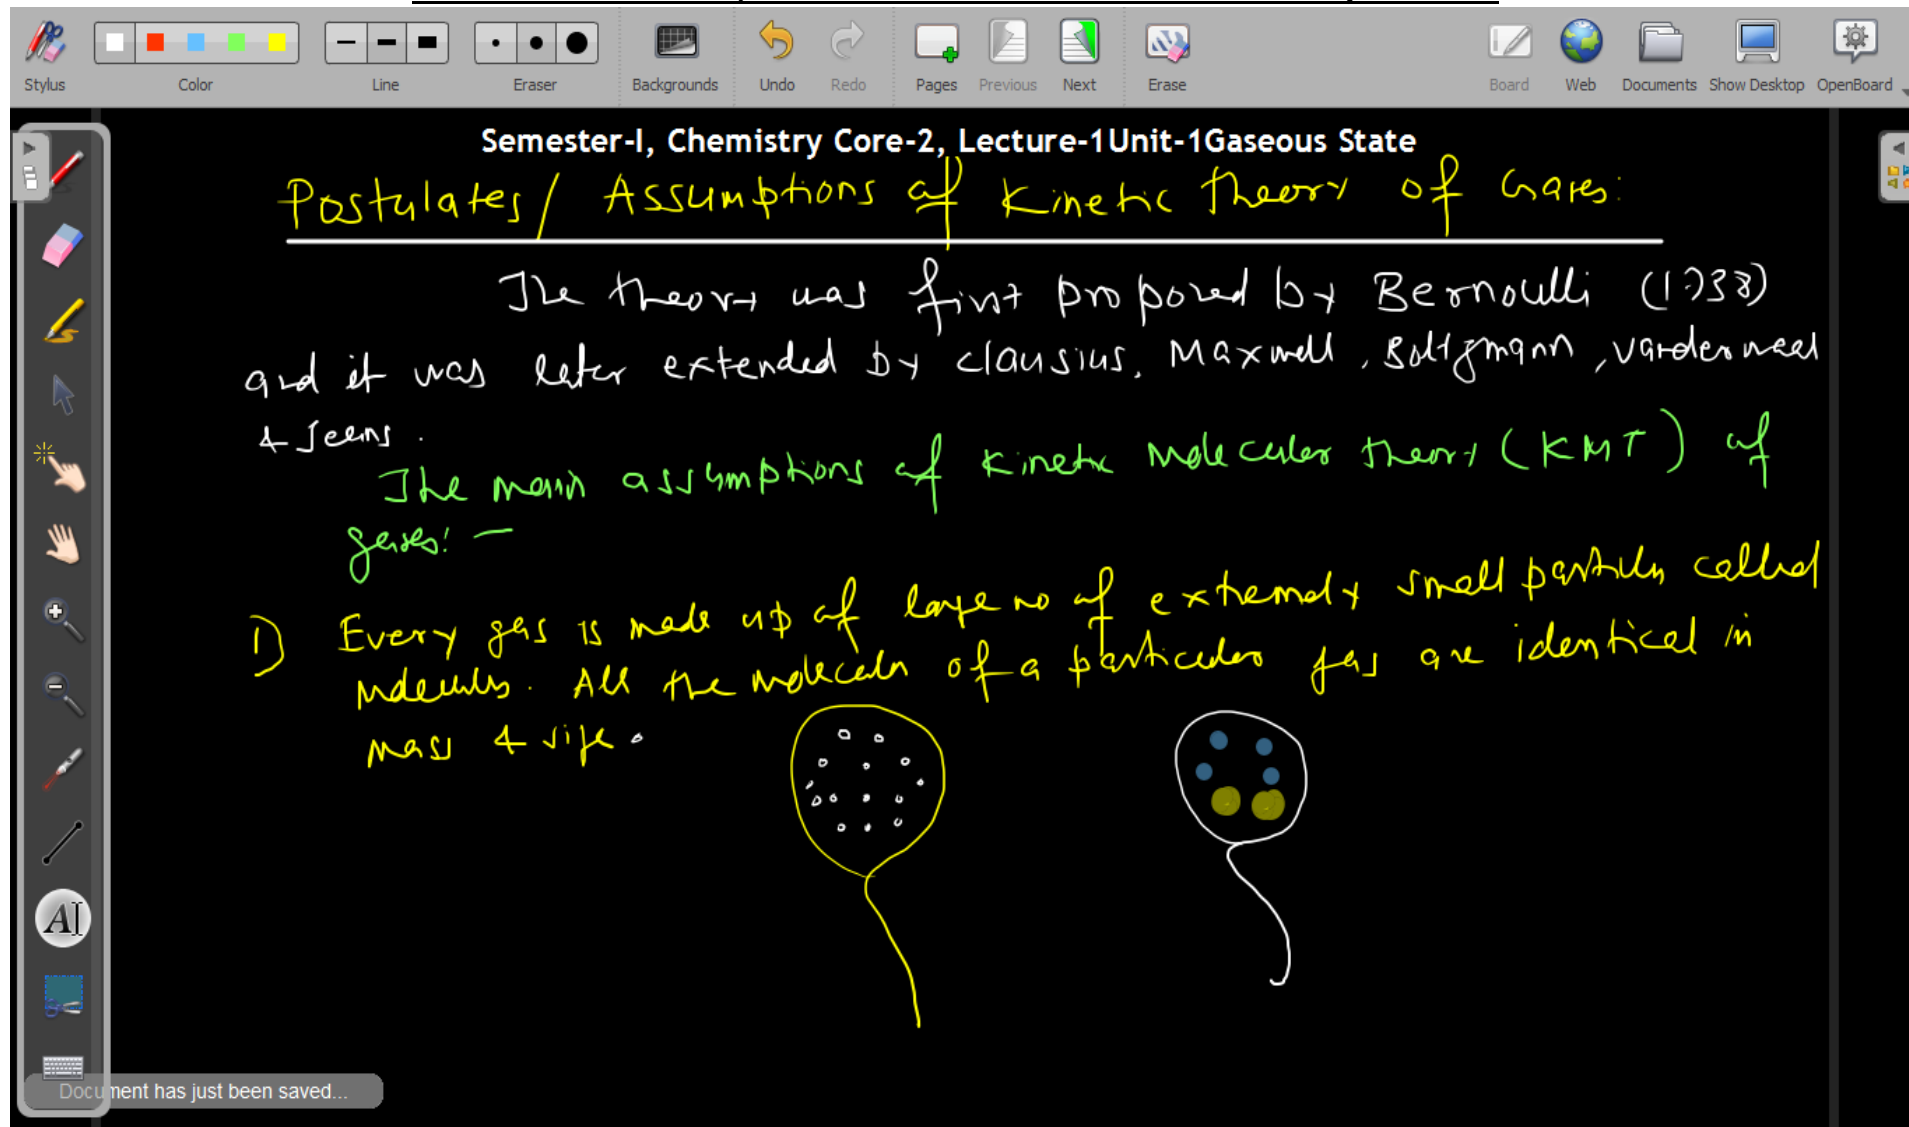 Stylus
Color
Line
Eraser
Backgrounds
Undo
Redo
Pages
Previous
Next
Erase
Board
Web
Documents
Show Desktop
OpenBoard
Semester-I, Chemistry Core-2, Lecture-1Unit-1Gaseous State
Postulates/ Assumptions of Kinetic theory of Gases:
The theory was first proposed by Bernoulli (1738)
and it was later extended by Clausius, Maxwell, Boltzmann, Vanderwaal
& Jeans.
The main assumptions of Kinetic Molecular theory (KMT) of
gases:-
1) Every gas is made up of large no of extremely small particles called
molecules. All the molecules of a particular gas are identical in
mass & size.
AI
Document has just been saved...